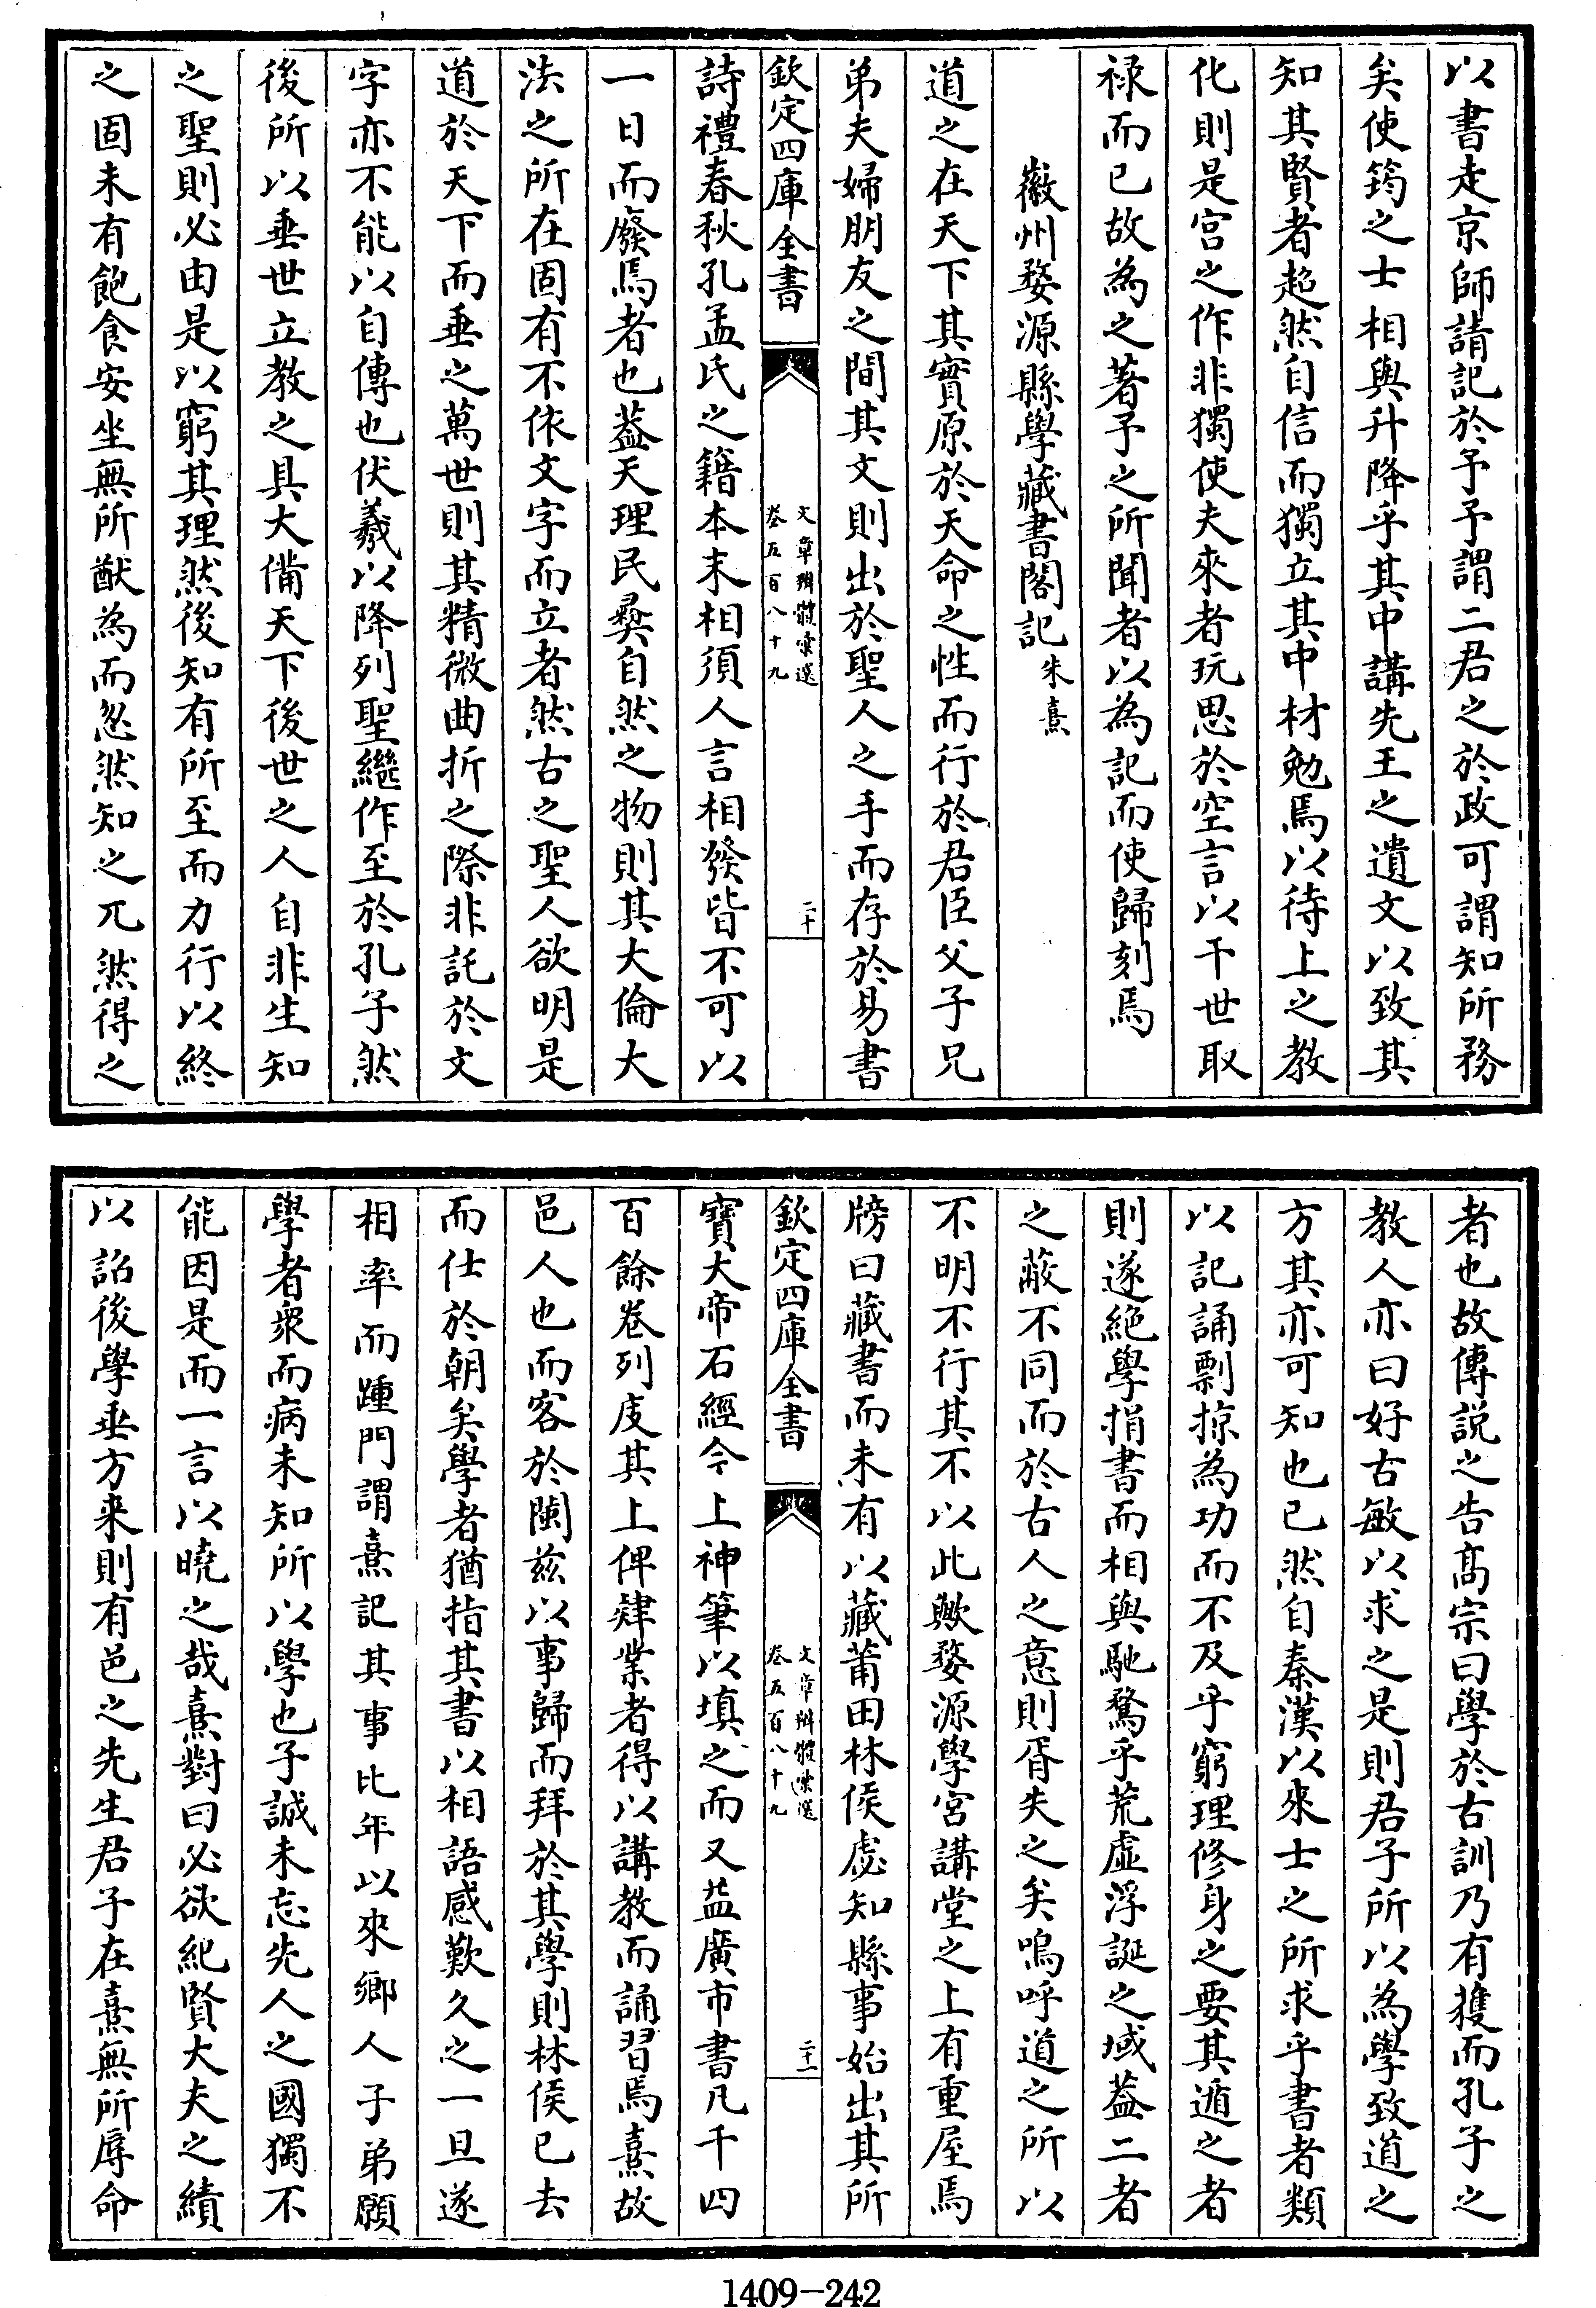 以書走京師請記於予予謂二君之於政可謂知所務
矣使筠之士相與升降乎其中講先王之遺文以致其
知其賢者超然自信而獨立其中材勉焉以待上之教
化則是宫之作非獨使夫來者玩思於空言以干世取
禄而已故為之著予之所聞者以為記而使歸刻焉
徽州婺源縣學藏書閣記朱熹
道之在天下其實原於天命之性而行於君臣父子兄
弟夫婦朋友之間其文則出於聖人之手而存於易書
欽定四庫全書
文章辨體彙選
卷五百八十九
二十
詩禮春秋孔孟氏之籍本末相須人言相發皆不可以
一日而廢焉者也葢天理民彝自然之物則其大倫大
法之所在固有不依文字而立者然古之聖人欲明是
道於天下而垂之萬世則其精微曲折之際非託於文
字亦不能以自傳也伏羲以降列聖繼作至於孔子然
後所以垂世立教之具大備天下後世之人自非生知
之聖則必由是以窮其理然後知有所至而力行以終
之固未有飽食安坐無所猷為而忽然知之兀然得之
者也故傅説之告髙宗曰學於古訓乃有獲而孔子之
教人亦曰好古敏以求之是則君子所以為學致道之
方其亦可知也已然自秦漢以來士之所求乎書者類
以記誦剽掠為功而不及乎窮理修身之要其遁之者
則遂絶學捐書而相與馳騖乎荒虚浮誕之域葢二者
之蔽不同而於古人之意則胥失之矣嗚呼道之所以
不明不行其不以此歟婺源學宫講堂之上有重屋焉
牓曰藏書而未有以藏莆田林侯虙知縣事始出其所
欽定四庫全書
文章辨體彙選
卷五百八十九
二十一
寶大帝石經今上神筆以填之而又益廣市書凡千四
百餘卷列庋其上俾肄業者得以講教而誦習焉熹故
邑人也而客於閩兹以事歸而拜於其學則林侯已去
而仕於朝矣學者猶指其書以相語感歎久之一旦遂
相率而踵門謂熹記其事比年以來鄉人子弟願
學者衆而病未知所以學也子誠未忘先人之國獨不
能因是而一言以曉之哉熹對曰必欲紀賢大夫之績
以詔後學垂方来則有邑之先生君子在熹無所辱命
1409-242